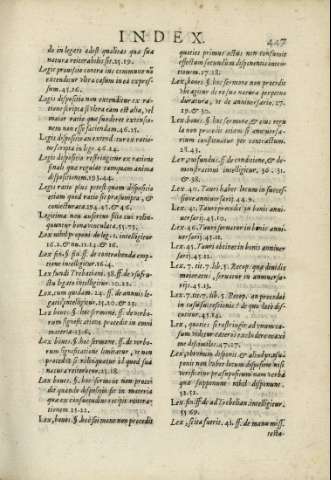 INDEX.
447
do in legato adest qualitas quæ sua
natura reiterabilis sit. 25. 19.
Legis prouisio contra ius commune nõ
extenditur vltra casum in ea expres-
sum. 45. 16.
Legis dispositio non extenditur ex ra-
tione scripta si vltra eam est alia, vel
maior ratio quæ suaderet extensio-
nem non esse faciendam. 46. 15.
Legis dispositio an extendatur ex ratio-
ne scripta in lege. 46. 24.
Legis dispositio restringitur ex ratione
finali quæ regulat tanquam anima
dispositionem. 253. 44.
Legis ratio plus potest quam dispositio
etiam quod ratio sit præsumpta, &
coniecturata. 254. 45. & 46.
Legitima non auferuntur
quuntur bona vincula. 55. 75.
Lex nihil proponi de leg. 1. intelligitur
16. 2. & 10. 12. 14. & 16.
Lex fin. §. fin. ff. de contrahenda emp-
tione intelligitur. 16. 14.
Lex surdi Trebatianus. 38. ff. de vsufru-
ctu legato intelligitur. 20. 22.
Lex, cum quidam. 24. ff. de annuis le-
gatis intelligitur. 25. 20. & 23.
Lex boues. §. hoc sermone. ff. de verbo-
rum signific. etiam procedit in omni
materia. 23. 6.
Lex boues. §. hoc sermone. ff. de verbo-
rum significatione limitatur, vt non
procedat si reliquatur id quod sua
natura reiteratur. 25. 18.
Lex boues. §. hoc sermone non proce-
dit quando dispositio fit in materia
quæ ex consuetudine recipit reitera-
tionem. 25. 22.
Lex, boues. §. hoc sermone non procedit
quoties primus actus non consumit
effectum secundum disponentis inten-
tionem. 27. 28.
Lex, boues. §. hoc sermone non procedit
vbi agitur de re sua natura perpetuo
duratura, vt de anniuersario. 27.
29. & 30.
Lex, boues. §. hoc sermone, & eius regu-
la non procedit etiam si anniuersa-
rium constituatur per contractum.
28. 43.
Lex, confundus. ff. de condictione, & de-
monstrationi intelligitur. 30. 31.
& 38.
Lex 40. Tauri habet locum in succes-
sione anniuersarij. 44. 9.
Lex 41. Tauri procedit in bonis anni-
uersarij. 45. 10.
Lex 46. Tauri seruatur in bonis anni-
uersarij. 45. 11.
Lex 45. Tauri obtinet in bonis anniuer
sarij. 45. 12.
Lex. 7. tit. 7. lib. 5. Recop. quæ diuidit
maioratus, seruatur in anniuersa-
rijs. 45. 13.
Lex 7. tit. 7. lib. 5. Recop. an procedat
in iuspatronatus? de quo latè dis-
cutitur. 45. 14.
Lex, quoties si restringitur ad vnum ca-
sum videtur cæteris exclusis remota
eius dispositio. 47. 17.
Lex, plurimum disponit & aliud præsu-
ponit non habet locum dispositio nisi
verificato præsuposito nam verba
quæ supponunt nihil disponunt.
52. 51.
Lex fin. ff. de ad Trebelian. intelligitur.
55. 69.
Lex, si ita fuerit. 41. ff. de manumiss.
testa-